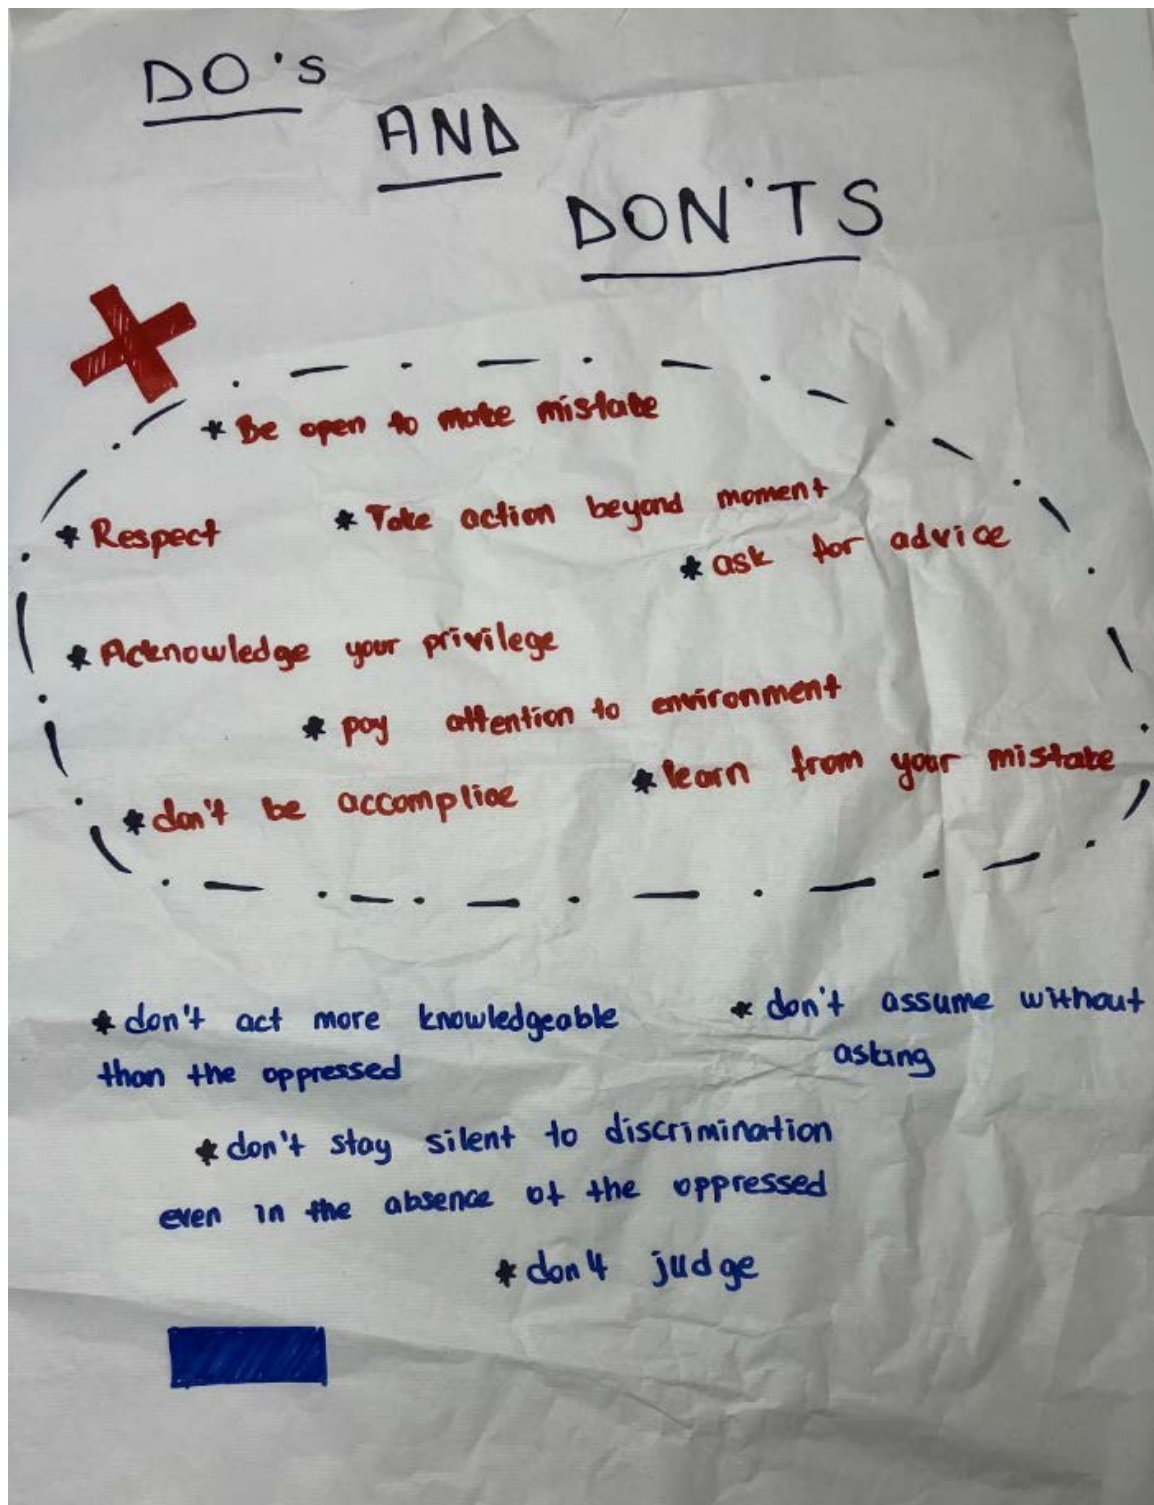 DO's
AND
DON'TS
* Be open to make mistake
* Respect
* Take action beyond moment
* ask for advice
* Acknowledge your privilege
* pay attention to environment
* don't be accomplice
* learn from your mistake
* don't act more knowledgeable
than the oppressed
* don't assume without
asking
* don't stay silent to discrimination
even in the absence of the oppressed
* don't judge